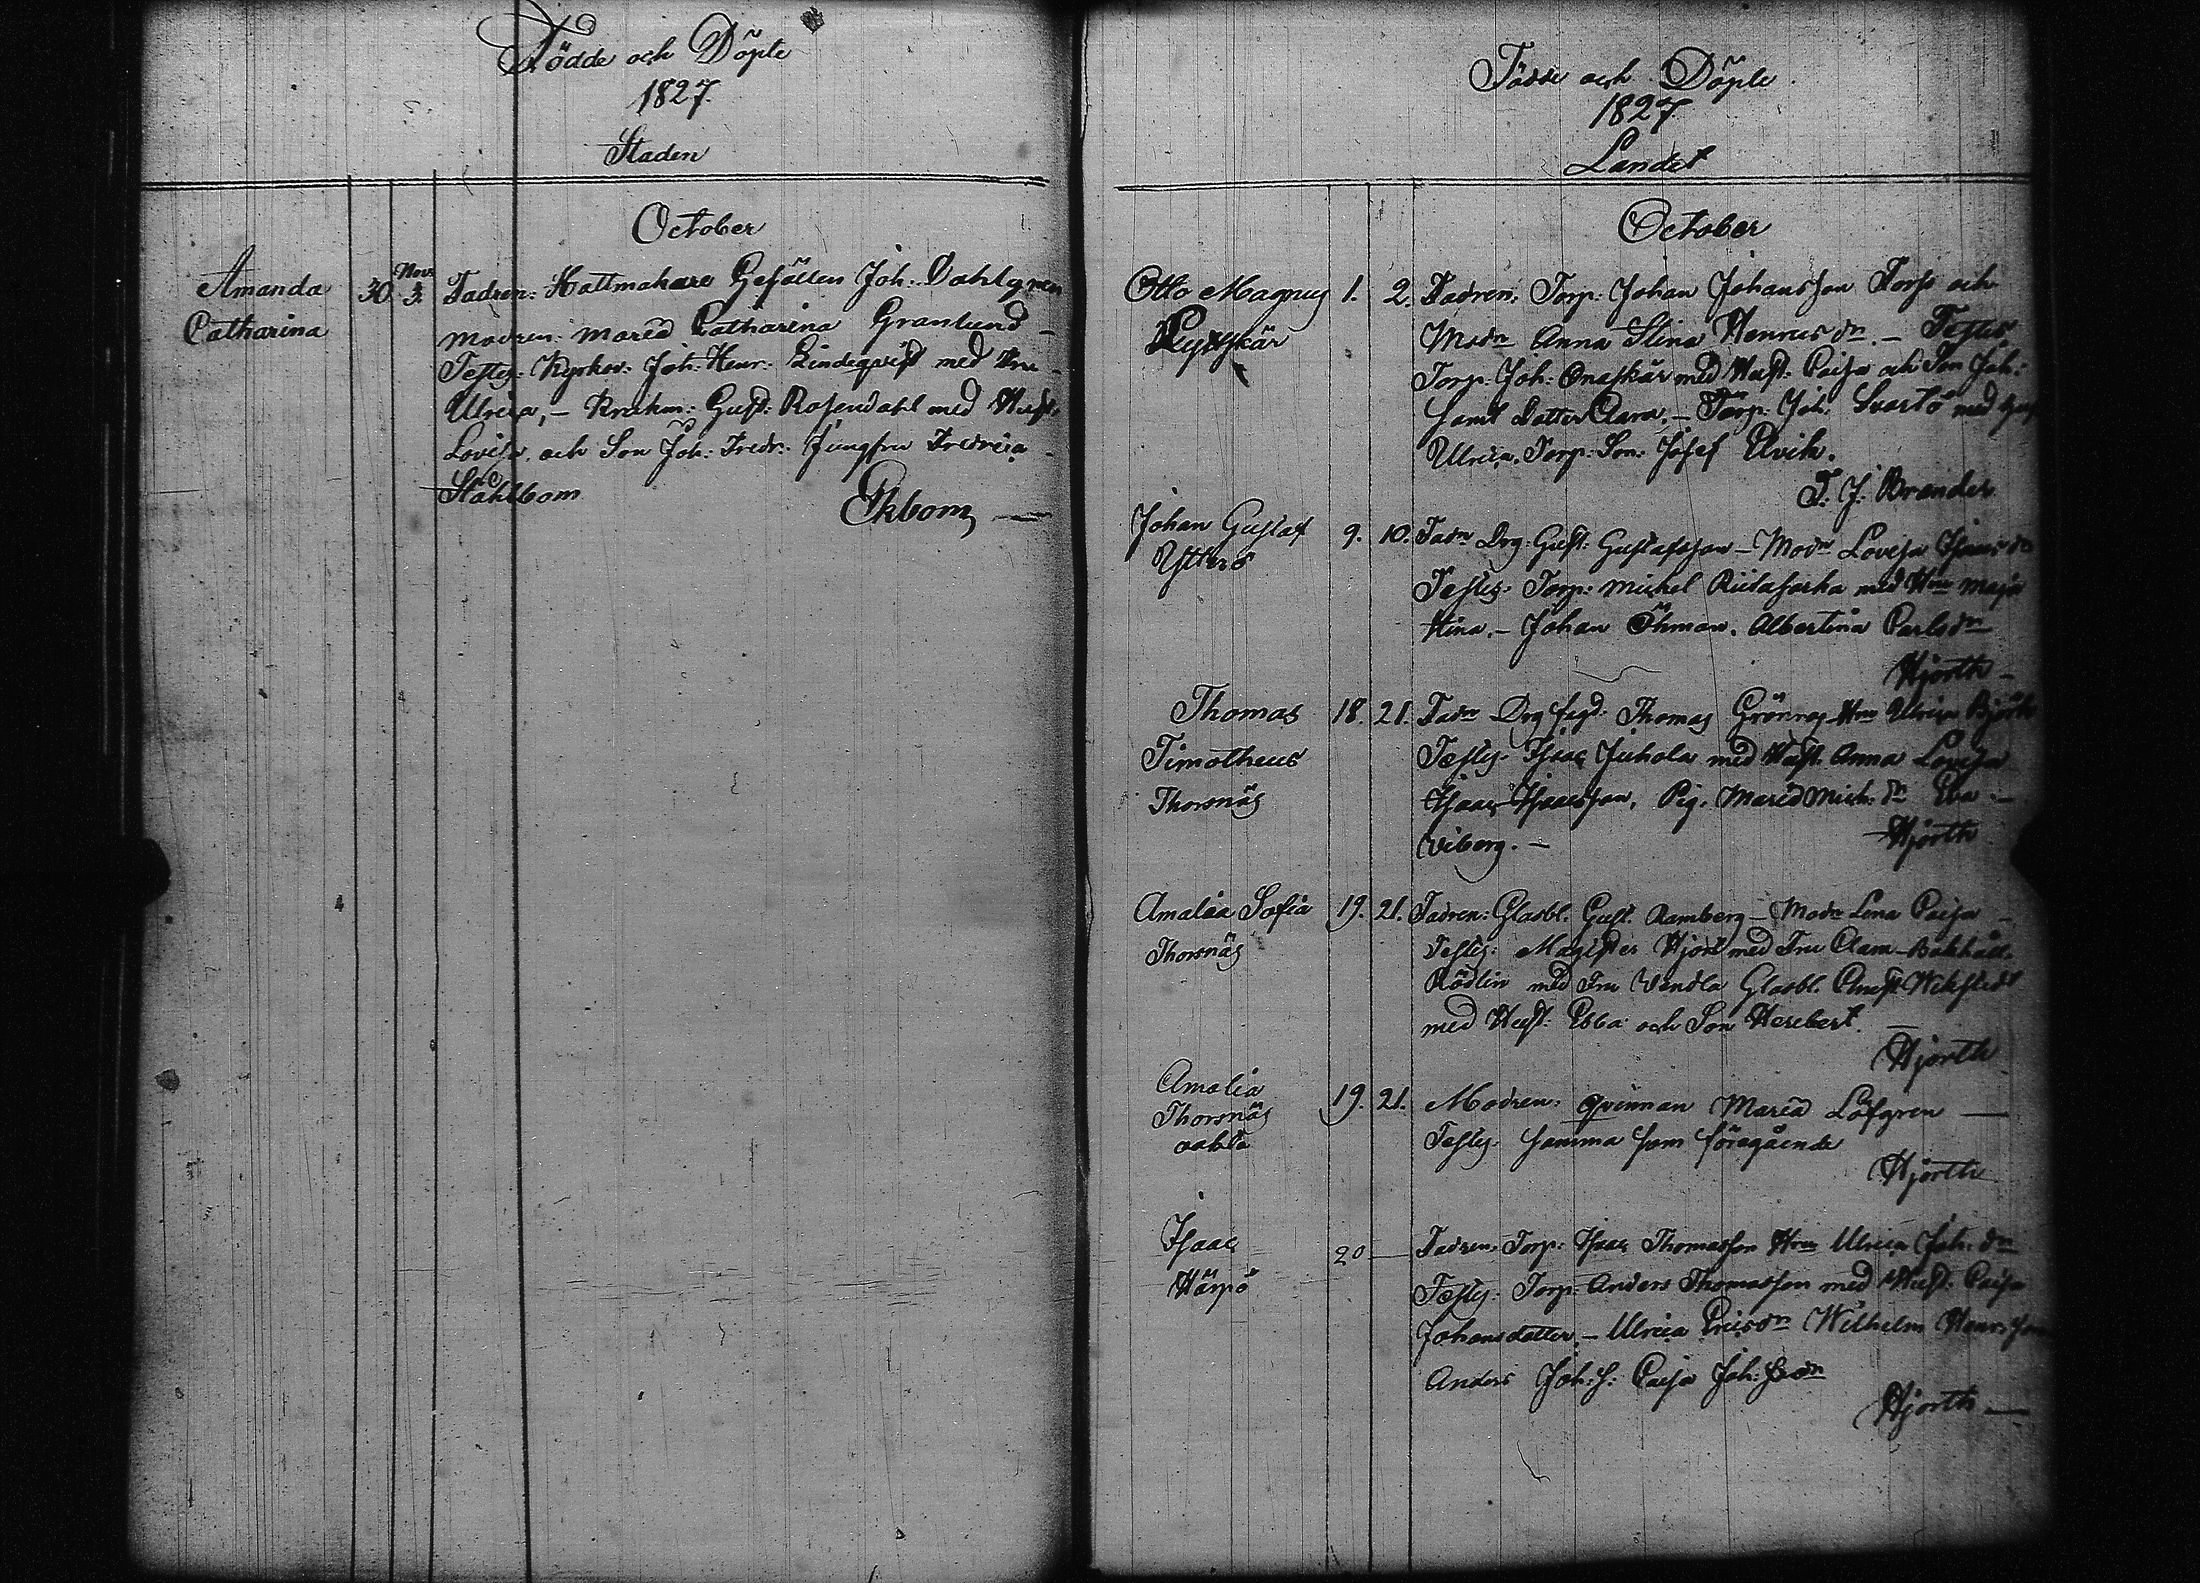 Födde och Döpte
1827.
Staden
October
Amanda 30. Nov. 3. Fadren: Hattmakare Gesällen Joh: Dahlgren
Catharina Modren: Maria Catharina Granlund –
Testes: Kyrkov: Joh: Henr: Lindeqvist med Fru
Ulrica, – Kruhm: Gust: Rosendahl med Hust:
Lovisa och Son Joh: Fredr: Jungfru Fredrica
Ståhlbom
Ekbom –
Födde och Döpte
1827
Landet
October
Otto Magnus 1. 2. Fadren: Torp: Johan Johansson Torso och
Modn Anna Stina Henricsdn. – Testes
Torp: Joh: Onaskär med Hust: Caisa och Son Joh:
samt Dotter Clara. – Torp: Joh: Svartö med
Ulrica. Torp: Son: Josef Elvik.
F. J. Brander
Johan Gustaf 9. 10. Fadn Drg: Gust: Gustafsson – Modn Lovisa
Ytterö
Testes: Torp: Michel Riilasacka med Hru Maja
Stina. – Johan Öhman. Albertina Carlsdn
Hjorth –
Thomas 18. 21. Fadn Drg Thomas Grönroos Hru Ulrica Björk
Timotheus Testes: Isaac Juhola med Hust. Anna Lovisa
Thorsnäs Isaac Isaacsson, Pig. Maria Mich: dn Eva –
Viberg. – Hjorth
Amalia Sofia 19. 21. Fadren: Glasbl. Gust. Ramberg – Modn Lena Caisa –
Thorsnäs Testes: Magister Hjort med Fru Clara – Bokhåll.
Rödlin med Fru Vendla Glasbl. Wikstedt
med Hust: Ebba och Son Herebert.
Hjorth
Amalia 19. 21. Modren: qvinnan Maria Löfgren –
Thorsnäs Testes: samma som föregående
oäkta
Hjorth
Isaac 20 – Fadren: Torp: Isaac Thomasson Hru Ulrica Joh: dn
Härpö Testes: Torp: Anders Thomasson med Hust. Caisa
Johansdotter, – Ulrica Ericsdn Wilhelm Henr: son
Anders Joh: S: Caisa Joh: dn
Hjorth –